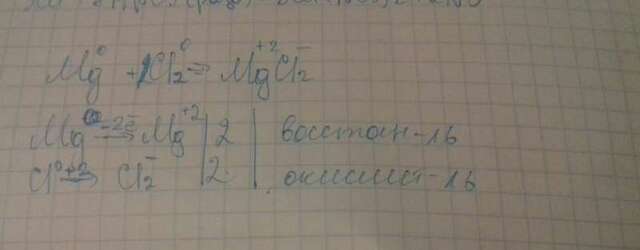 Mg⁰ + Cl₂⁰ = Mg⁺²Cl₂⁻
Mg⁰ -2ē → Mg⁺² | 2 | восстан-ль
Cl⁰ +2 → Cl₂⁻ | 2 | окислит-ль